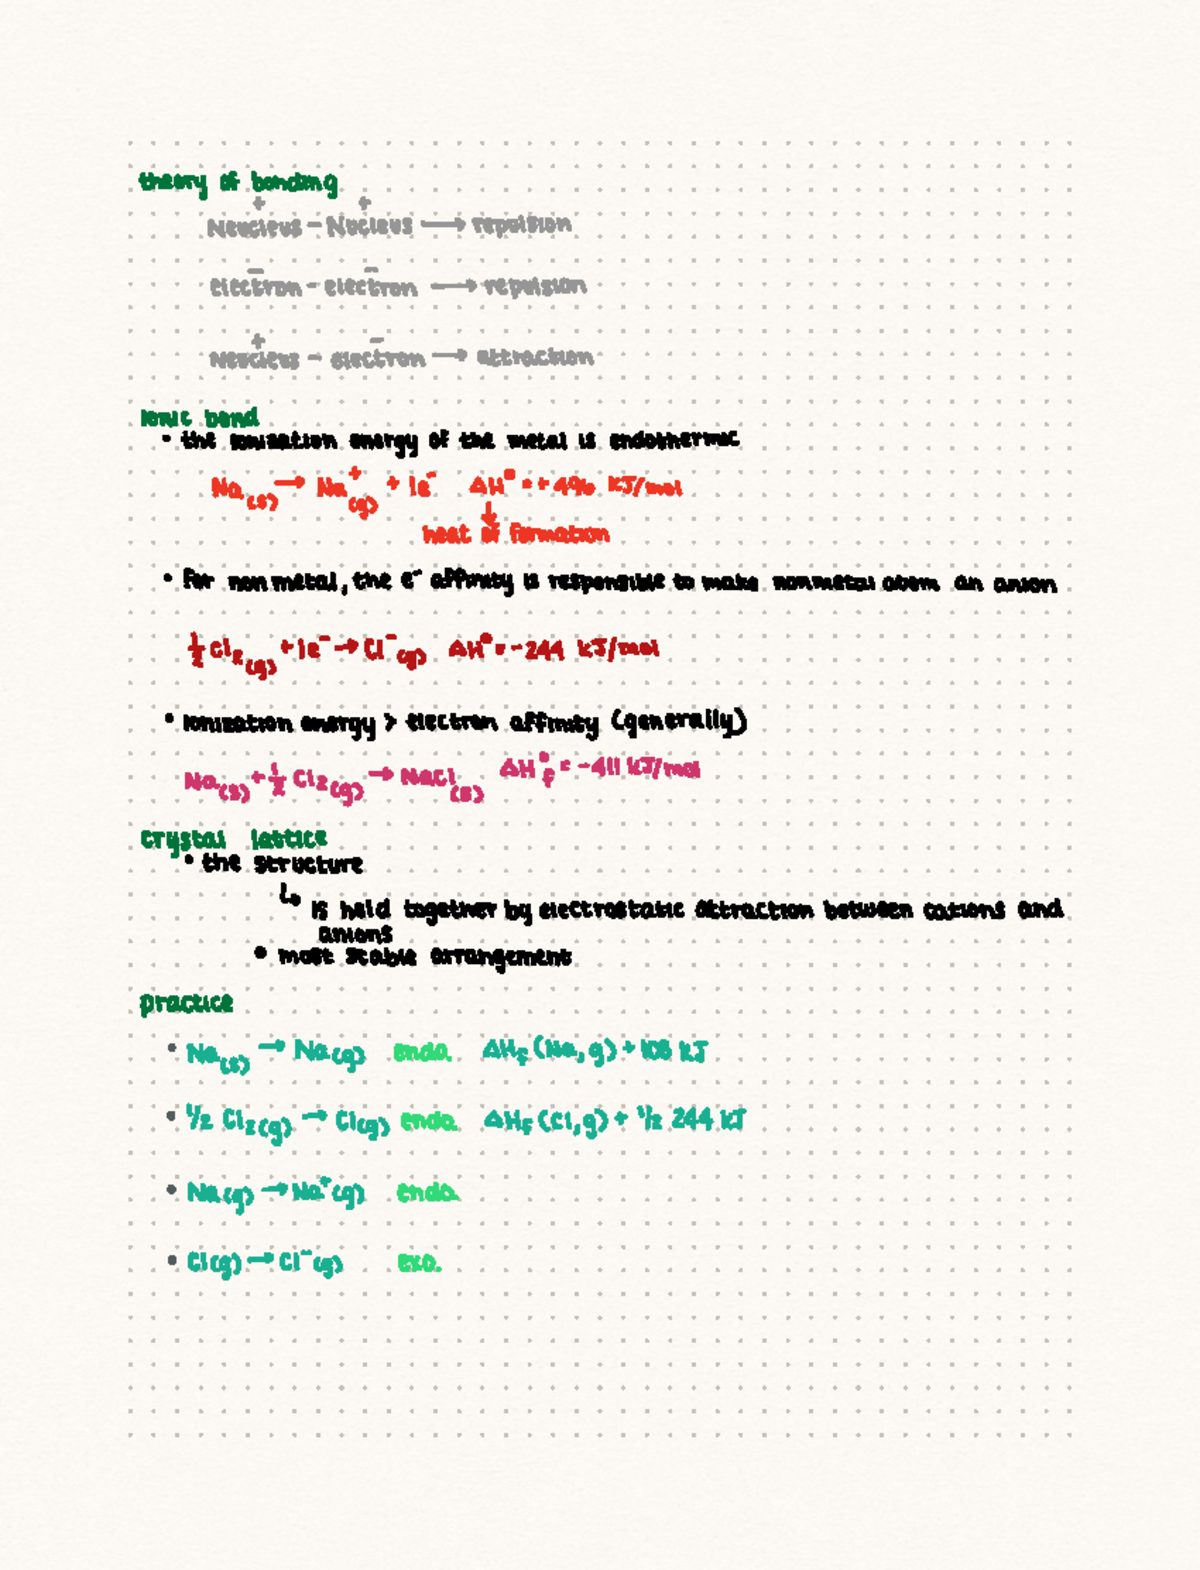 theory of bonding
+ +
Neucleus - Nucleus → repulsion
- -
electron - electron → repulsion
+ -
Neucleus - electron → attraction
Ionic bond
• the ionization energy of the metal is endothermic
Na(s) → Na⁺(g) + 1e⁻ ΔH° = +496 kJ/mol
↓
heat of formation
• for nonmetal, the e⁻ affinity is responsible to make nonmetal atom an anion
½Cl₂(g) + 1e⁻ → Cl⁻(g) ΔH° = -244 kJ/mol
• Ionization energy > electron affinity (generally)
Na(s) + ½ Cl₂(g) → NaCl(s) ΔH°f = -411 kJ/mol
crystal lattice
• the structure
↳ is held together by electrostatic attraction between cations and
anions
• most stable arrangement
practice
• Na(s) → Na(g) endo. ΔHf (Na, g) + 108 kJ
• ½ Cl₂(g) → Cl(g) endo. ΔHf (Cl, g) + ½ 244 kJ
• Na(g) → Na⁺(g) endo.
• Cl(g) → Cl⁻(g) exo.